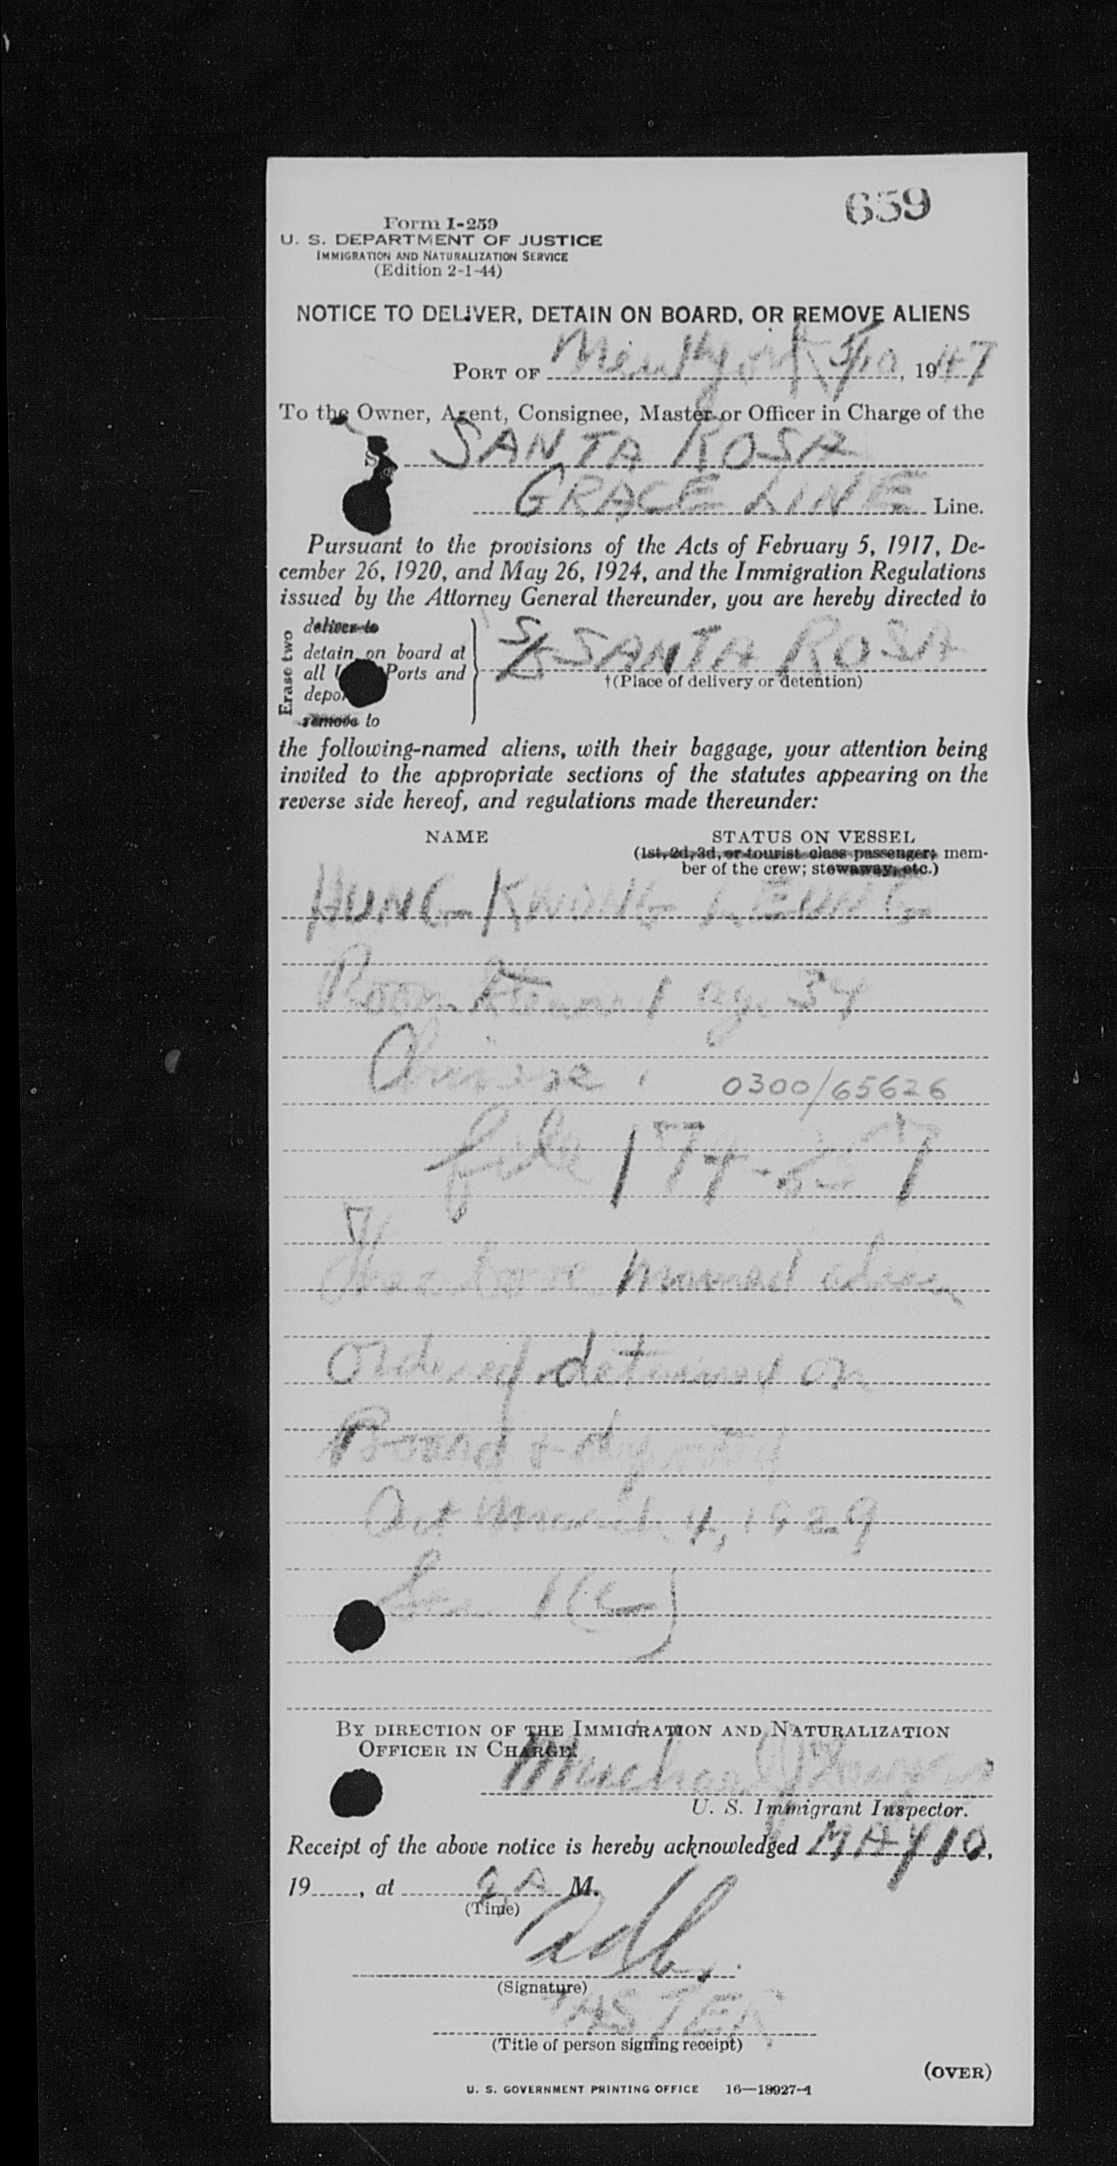 659
Form I-259
U. S. DEPARTMENT OF JUSTICE
IMMIGRATION AND NATURALIZATION SERVICE
(Edition 2-1-44)
NOTICE TO DELIVER, DETAIN ON BOARD, OR REMOVE ALIENS
PORT OF New York 5/10, 1947
To the Owner, Agent, Consignee, Master or Officer in Charge of the
SANTA ROSA
GRACE LINE Line.
Pursuant to the provisions of the Acts of February 5, 1917, De-
cember 26, 1920, and May 26, 1924, and the Immigration Regulations
issued by the Attorney General thereunder, you are hereby directed to
Erase two
deliver to
detain on board at
all Ports and
remove to
S/S SANTA ROSA
†(Place of delivery or detention)
the following-named aliens, with their baggage, your attention being
invited to the appropriate sections of the statutes appearing on the
reverse side hereof, and regulations made thereunder:
NAME STATUS ON VESSEL
(1st, 2d, 3d, or tourist class passenger; mem-
ber of the crew; stowaway, etc.)
HUNG KWONG LEUNG
Room Steward age 34
Chinese
0300/65626
file
The above named alien
ordered detained on
Board & deported
Act March 4, 1929
Sec 1(c)
BY DIRECTION OF THE IMMIGRATION AND NATURALIZATION
OFFICER IN CHARGE.
U. S. Immigrant Inspector.
Receipt of the above notice is hereby acknowledged MAY 10,
19 , at 9 A M.
(Time)
(Signature)
MASTER
(Title of person signing receipt)
(OVER)
U. S. GOVERNMENT PRINTING OFFICE 16—18927-1